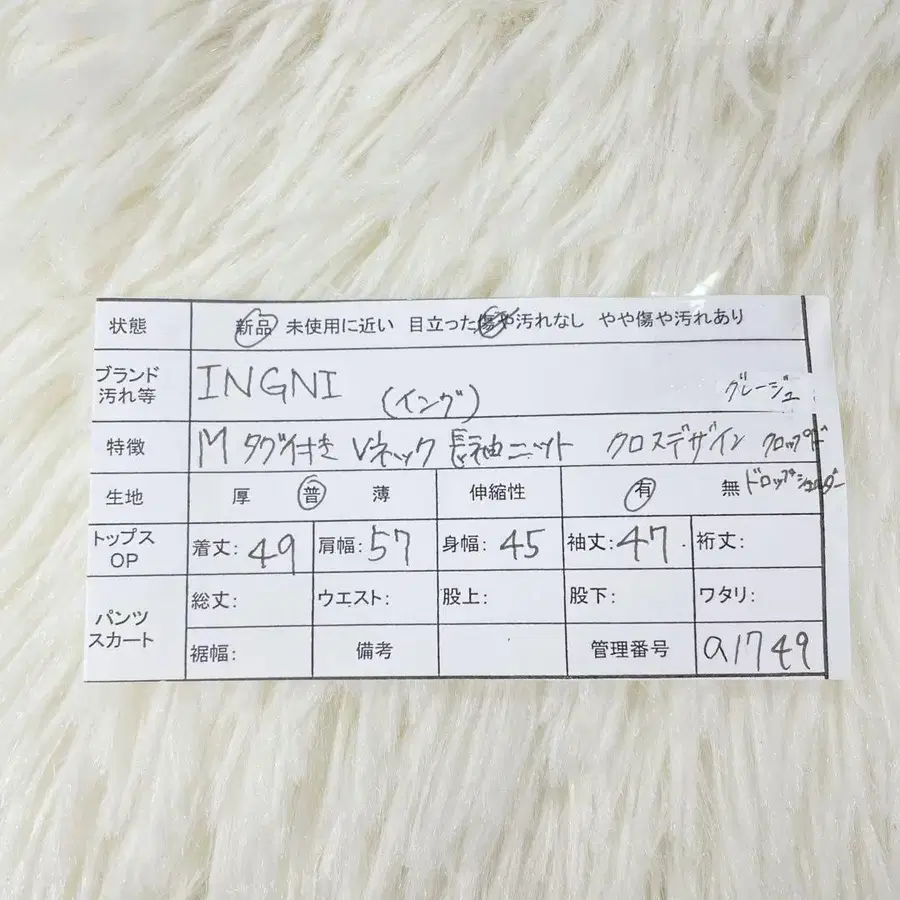 状態 新品 未使用に近い 目立った傷や汚れなし やや傷や汚れあり
ブランド
汚れ等 INGNI (イング) グレージュ
特徴 M タグ付き Vネック 長袖ニット クロスデザイン クロップド
ドロップショルダー
生地 厚 普 薄 伸縮性 有 無
トップス
OP 着丈: 49 肩幅: 57 身幅: 45 袖丈: 47 裄丈:
パンツ
スカート 総丈: ウエスト: 股上: 股下: ワタリ:
裾幅: 備考 管理番号 a1749